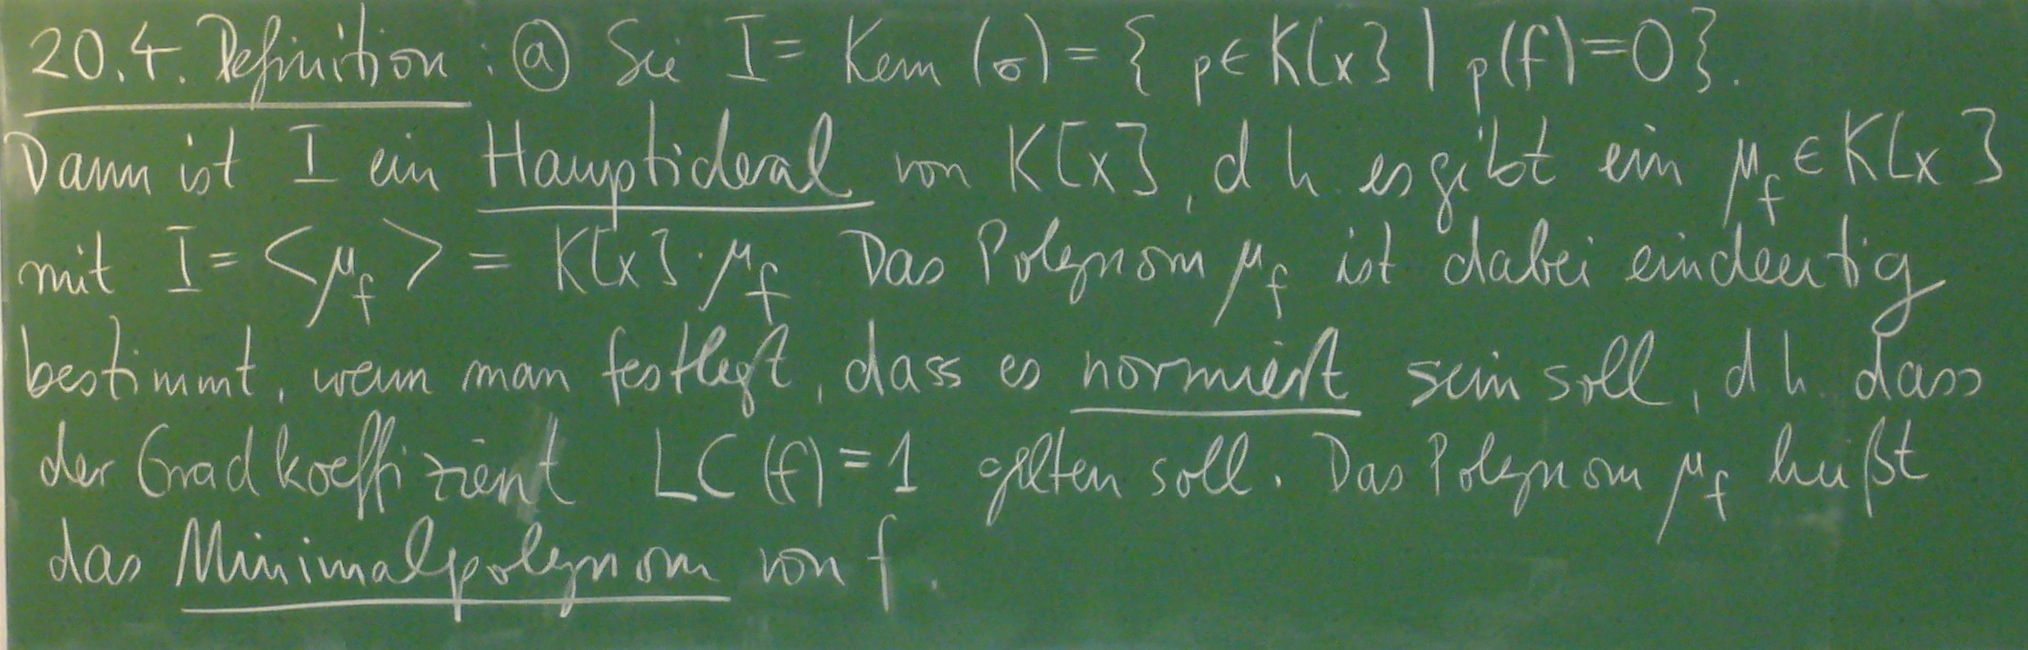 20.4. Definition: ⓐ Sei I = Kern (σ) = { p ∈ K[x] | p(f) = 0 }.
Dann ist I ein Hauptideal von K[x], d h. es gibt ein μ_f ∈ K[x]
mit I = <μ_f> = K[x]·μ_f Das Polynom μ_f ist dabei eindeutig
bestimmt, wenn man festlegt, dass es normiert sein soll, d h. dass
der Gradkoeffizient LC(f) = 1 gelten soll. Das Polynom μ_f heißt
das Minimalpolynom von f.